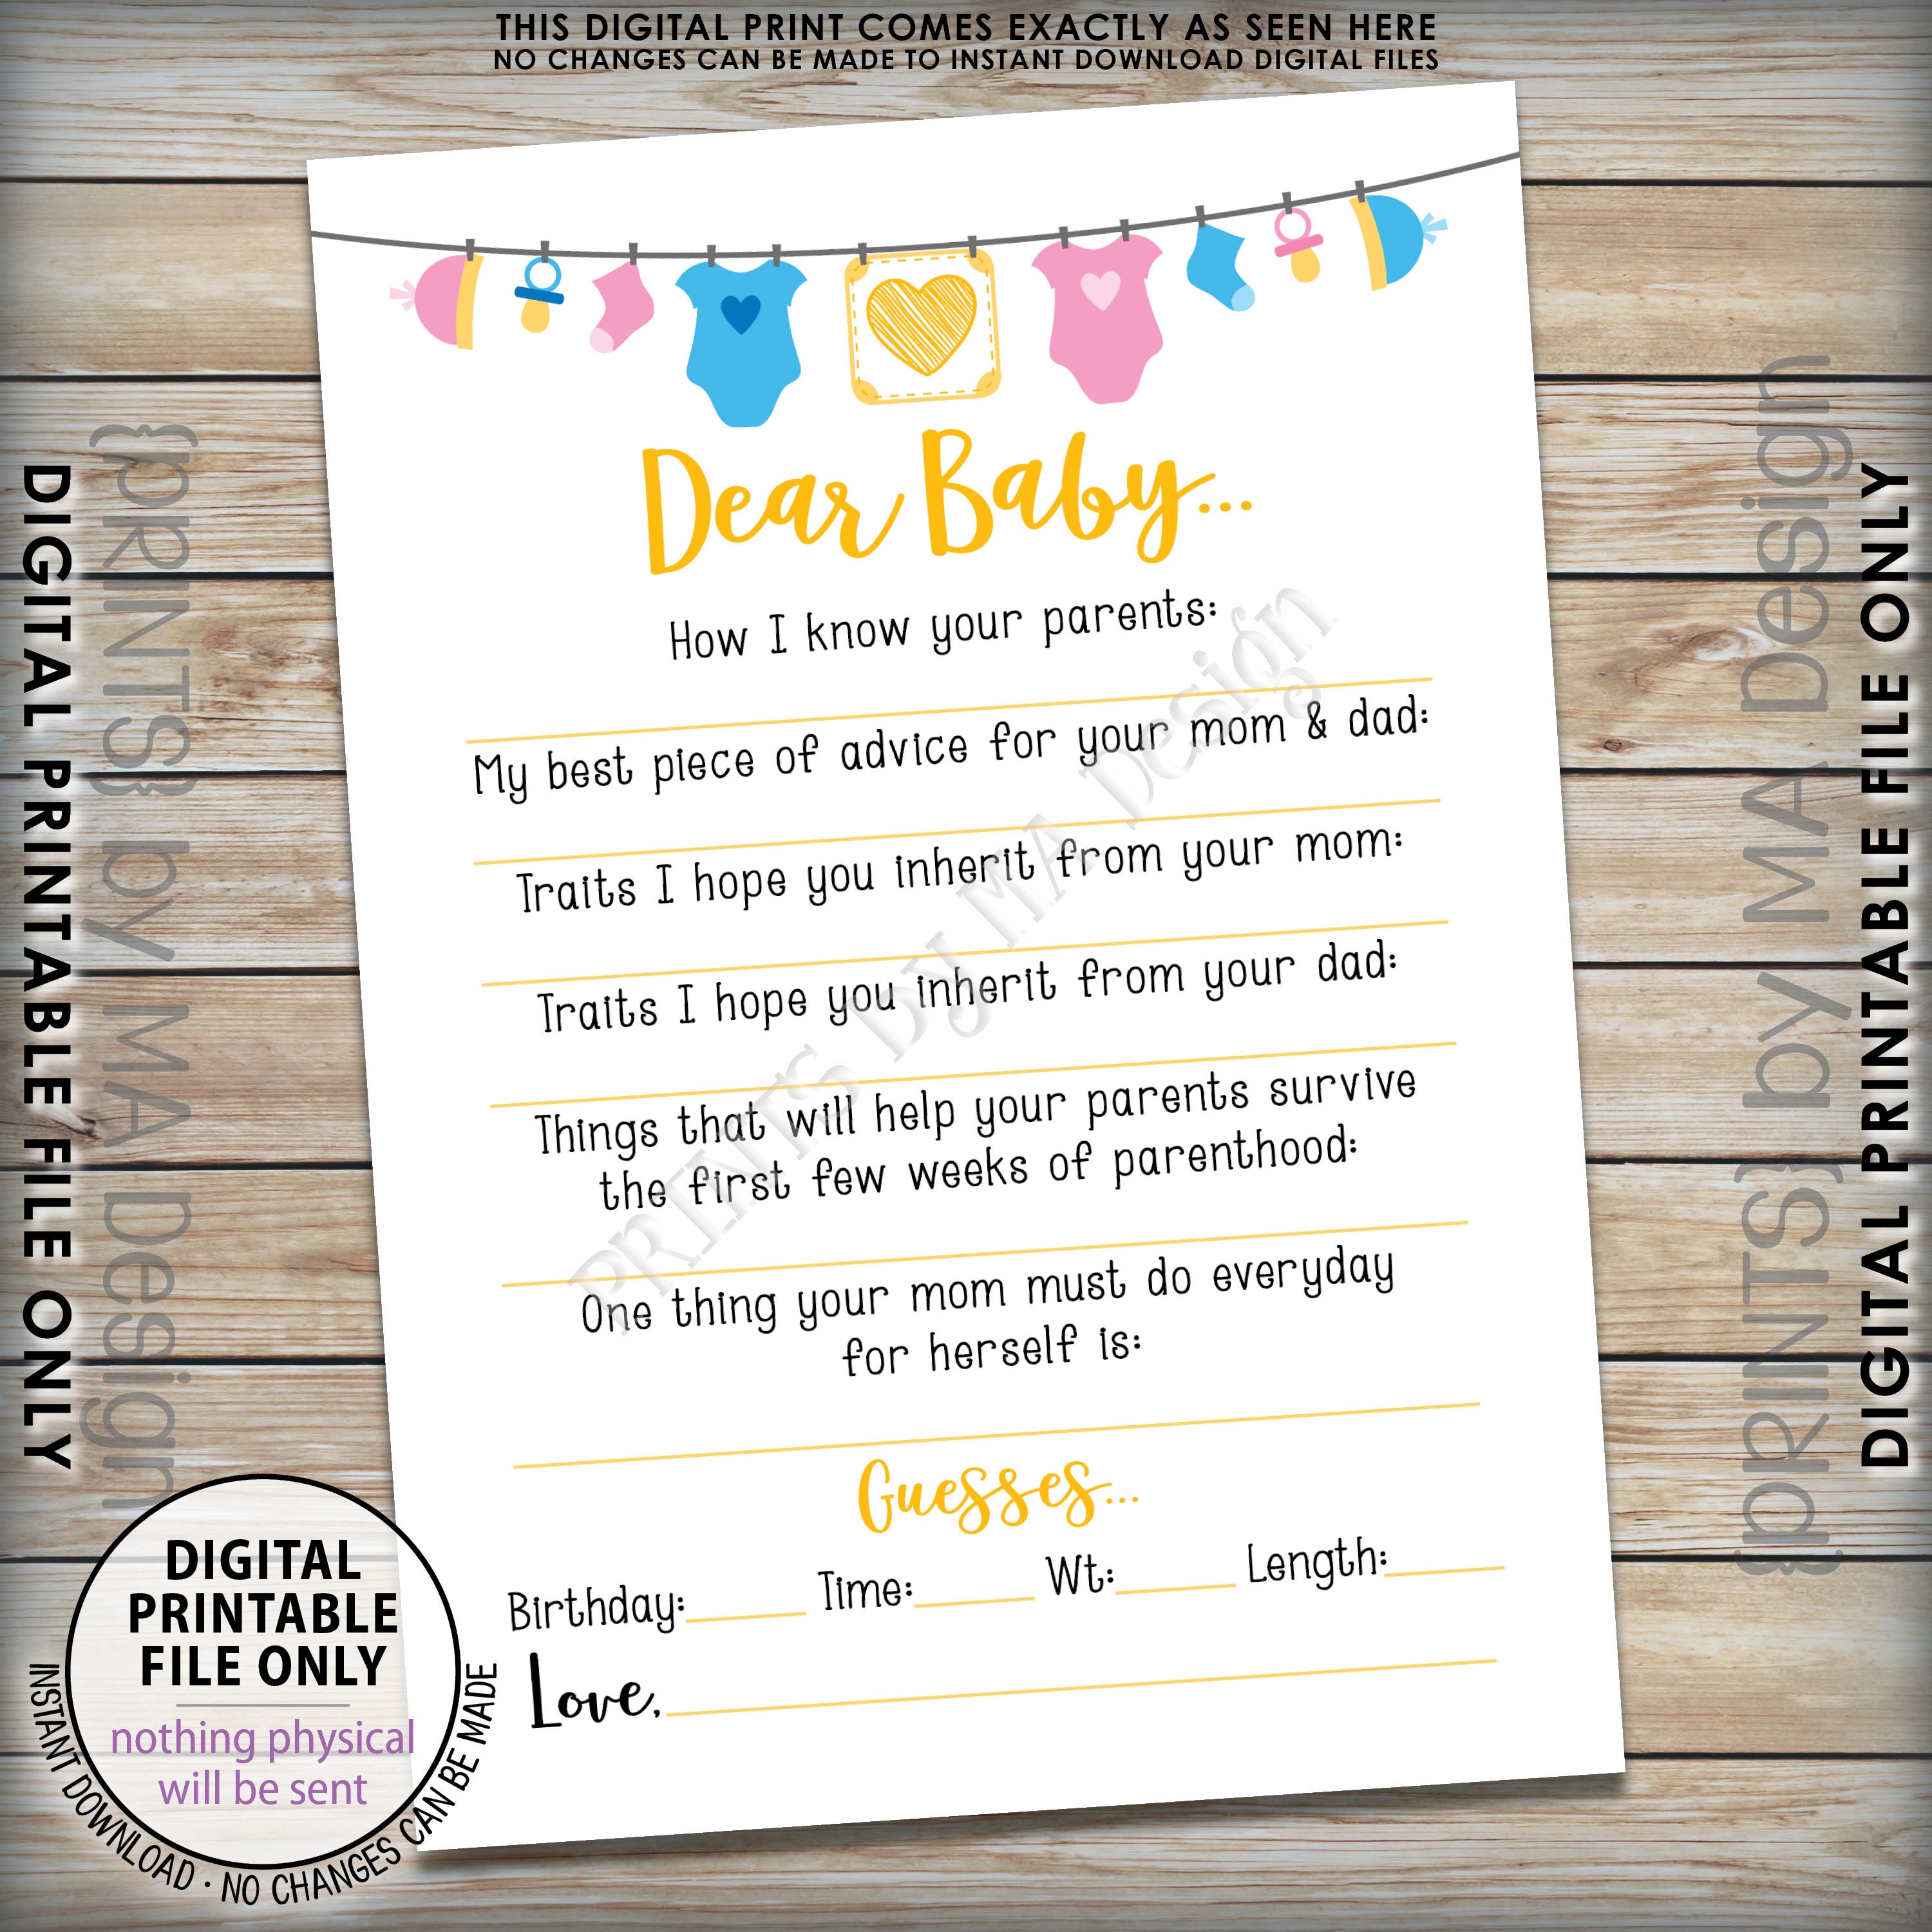 THIS DIGITAL PRINT COMES EXACTLY AS SEEN HERE
NO CHANGES CAN BE MADE TO INSTANT DOWNLOAD DIGITAL FILES
DIGITAL PRINTABLE FILE ONLY
{PRINTS} by MA Design
Dear Baby...
How I know your parents:
My best piece of advice for your mom & dad:
Traits I hope you inherit from your mom:
Traits I hope you inherit from your dad:
Things that will help your parents survive
the first few weeks of parenthood:
One thing your mom must do everyday
for herself is:
Guesses...
Birthday: Time: Wt: Length:
Love,
PRINTS by MA Design
{PRINTS} by MA Design
DIGITAL PRINTABLE FILE ONLY
DIGITAL
PRINTABLE
FILE ONLY
nothing physical
will be sent
INSTANT DOWNLOAD · NO CHANGES CAN BE MADE